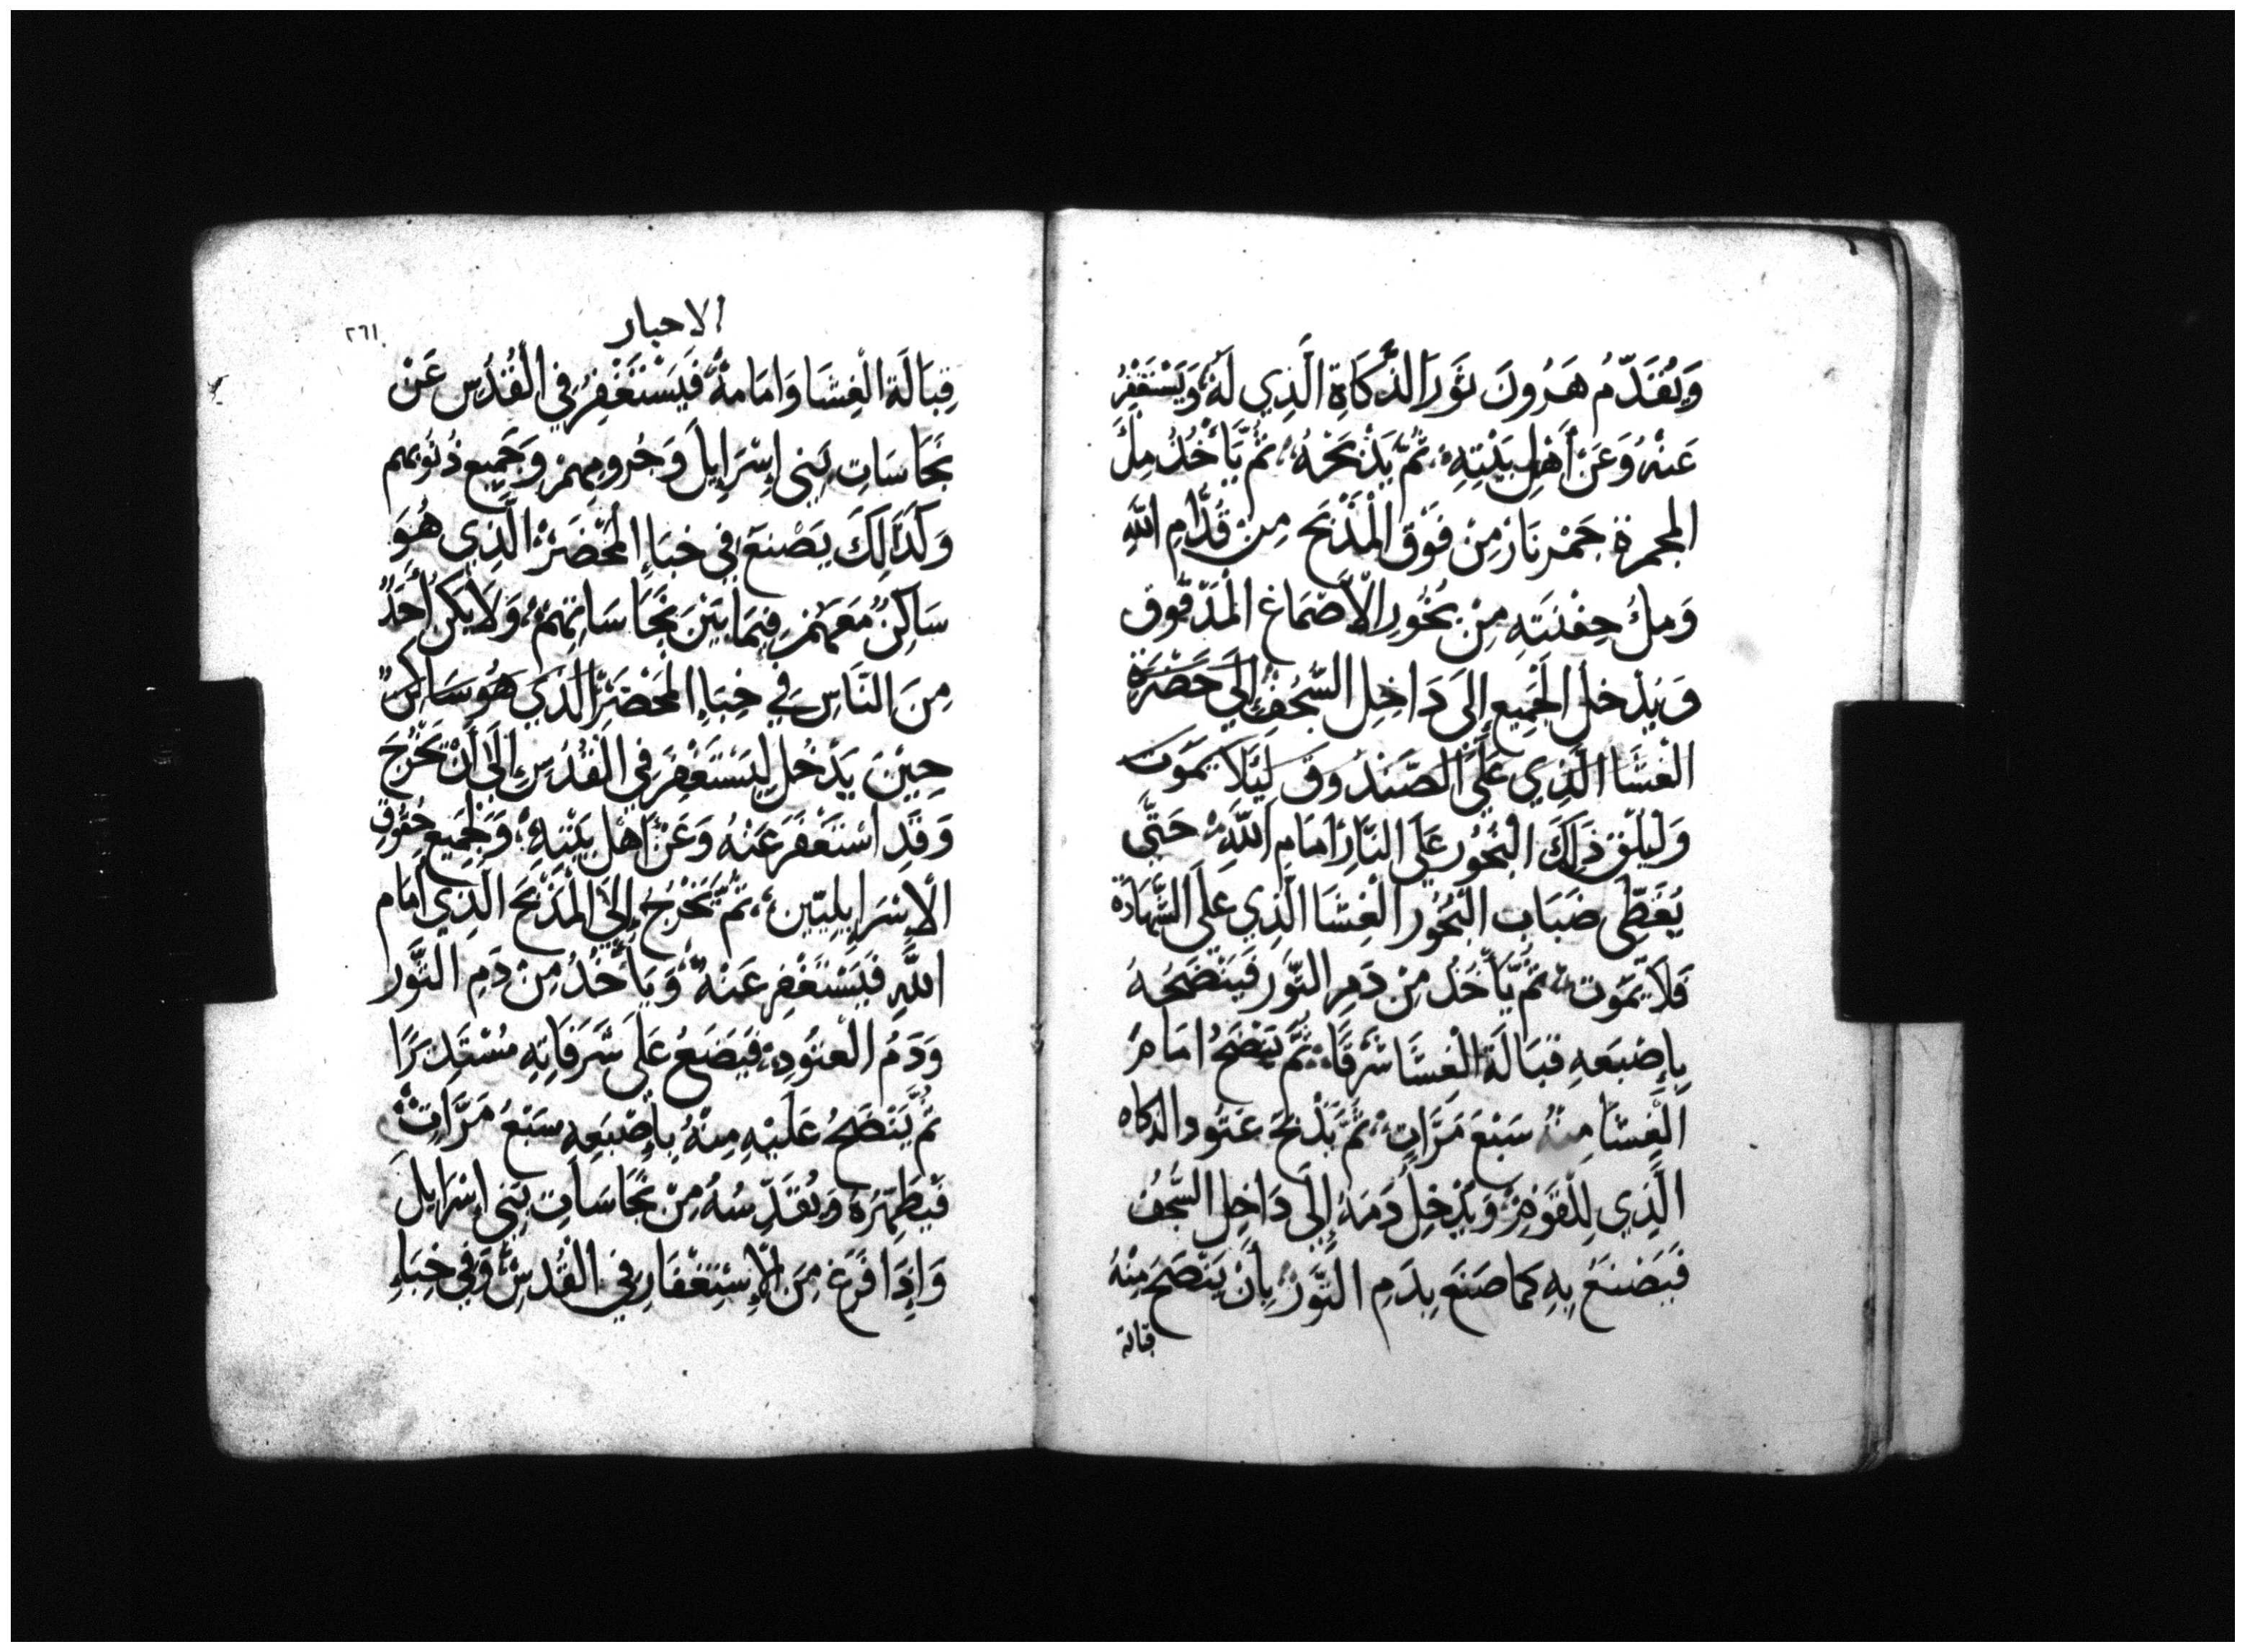 وَيُقَدِّمُ هَرُونَ ثَوْرَ الذَّكَاةِ الَّذِي لَهُ وَيَسْتَغْفِرُ
عَنْهُ وَعَنْ أَهْلِ بَيْتِهِ ثُمَّ يَذْبَحْهُ ثُمَّ يَأْخُذُ مِلْءَ
المجمرة جَمْرِ نَارْ مِنْ فَوْقِ الْمَذْبَحْ مِنْ قُدَّامِ اللهِ
وَمِلْءُ حِفْنَتِهِ مِنْ بَخُورِ الْأَصْمَاغِ الْمَدْقُوقِ
وَيُدْخِلُ الْجَمِيعِ إِلَى دَاخِلِ السَّجْفِ إِلَى حَضْرَةِ
الْغِشَا الَّذِي عَلَى الصَّنْدُوقِ لِيَلَا يَمُوتَ
وَلْيُلْقِ ذَلِكَ الْبَخُورِ عَلَى النَّارِ أَمَامِ اللَّهِ حَتَّى
يُغَطِّى ضَبَابِ الْبَخُورِ الْغِشَا الَّذِي عَلَى الشَّهَادَةْ
فَلَا يَمُوتْ ثُمَّ يَأْخُذُ مِنْ دَمِ الثَّوْرِ فَيَنْضَحُهُ
بِإِصْبَعِهِ قبَالَةَ الْغِشَا شَرْقًا ثُمَّ يَنْضَحُ امَامَ
الْغِشَا مِنْهُ سَبْعَ مَرَّاتٍ ثُمَّ يَذْبَحُ عَتُود الذكاه
الَّذِي لِلْقَوْمِ وَيُدْخِلُ دَمَهُ إِلَى دَاخِلِ السَّجْفْ
فَيَصْنَعُ بِهِ كَمَا صَنَعَ بِدَمِ الثَّوْرْ بِأَنْ يَنْضَحَ مِنْهُ
قبالة
الاحبار
٢٦١
قِبَالَةَ الْغِشَا وَامَامهُ فَيَسْتَغْفِرُ فِي الْقُدْسِ عَنْ
نَجَاسَاتِ بَنِى إِسْرَايِلَ وَجُرومِهِمْ وَجَمِيعِ ذُنُوبِهِم
وَكَذَالِكَ يَصْنَعْ فِي خِبَاءِ الْمَحْضَرْ الَّذِي هُوَ
سَاكِنٌ مَعَهُمْ فِيمَا بَيْنَ نَجَاسَاتِهِمْ وَلَا يَكُنْ أَحَدٌ
مِنَ النَّاسِ فِي خِبَاءِ الْمَحْضَرِ الَّذِي هُوَ سَاكِنٌ
حِيْنَ يَدْخُلِ لِيَسْتَغْفِرَ فِي الْقُدْسِ إِلَى أَنْ يَخْرُجَ
وَقَدِ اسْتَغْفَرَ عَنْهُ وَعَنْ أَهْلِ بَيْتِهِ وَجَمِيعِ جُقُوقِ
الْإِسْرَايِلِيِّينَ ثُمَّ يَخْرُجُ إِلَى الْمَذْبَحَ الَّذِي أَمَام
اللَّهِ فَيَسْتَغْفِرِ عَنْهُ وَيَأْخُذُ مِنْ دَمِ الثَّوْرِ
وَدَمُ الْعَتُودِ فَيَضَعُ عَلَى شُرَفَاتِهِ مُسْتَدِيرًا
ثُمَّ يَنْضَحُ عَلَيْهِ مِنْهُ بِإِصْبَعِهِ سَبْعُ مَرَّاتٍ
فَيُطَهِّرُهُ وَيُقَدِّسُهُ مِنْ نَجَاسَاتِ بَنِي إِسْرَايِلَ
وَإِذَا فَرَغَ مِنَ الْإِسْتِغْفَارِ فِي الْقُدْسِ وَفِي خِبَاءِ